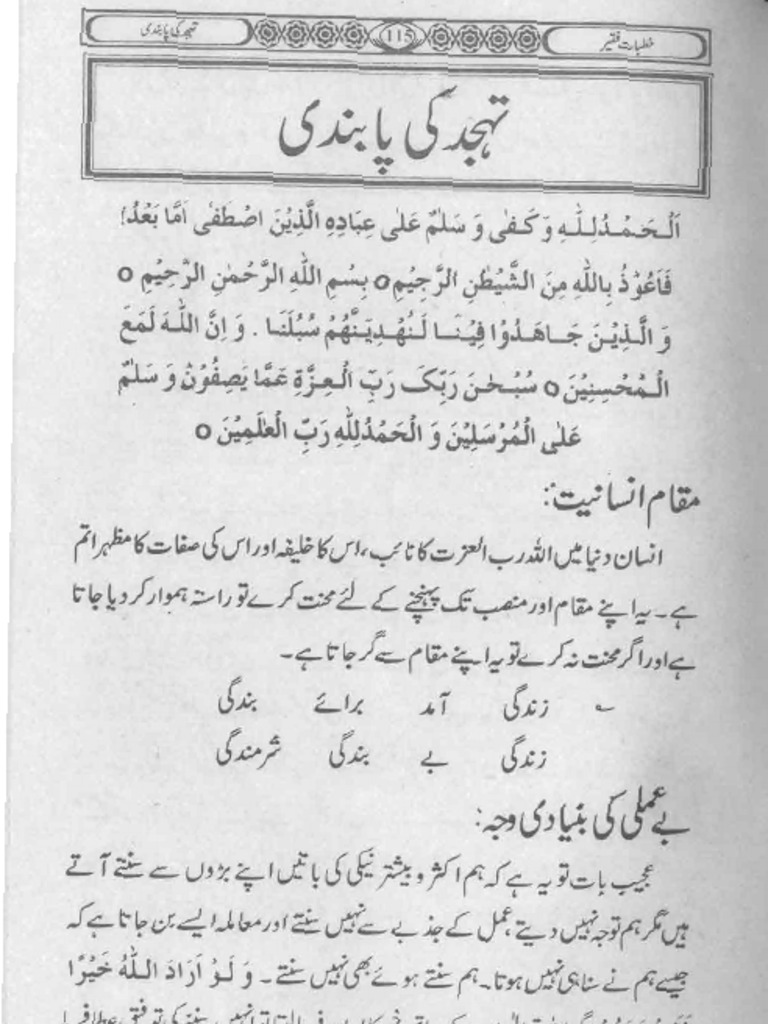 خطبات فقیر 115 تہجد کی پابندی
تہجد کی پابندی
اَلْحَمْدُلِلّٰهِ وَ کَفٰی وَ سَلٰمٌ عَلٰی عِبَادِهِ الَّذِیْنَ اصْطَفٰی اَمَّا بَعْدُ!
فَاَعُوْذُ بِاللّٰهِ مِنَ الشَّیْطٰنِ الرَّجِیْمِ o بِسْمِ اللّٰهِ الرَّحْمٰنِ الرَّحِیْمِ o
وَ الَّذِیْنَ جَاهَدُوْا فِیْنَا لَنَهْدِیَنَّهُمْ سُبُلَنَا . وَ اِنَّ اللّٰهَ لَمَعَ
الْمُحْسِنِیْنَ o سُبْحٰنَ رَبِّکَ رَبِّ الْعِزَّةِ عَمَّا یَصِفُوْنَ وَ سَلٰمٌ
عَلَی الْمُرْسَلِیْنَ وَ الْحَمْدُلِلّٰهِ رَبِّ الْعٰلَمِیْنَ o
مقام انسانیت:
انسان دنیا میں اللہ رب العزت کا نائب، اس کا خلیفہ اور اس کی صفات کا مظہر اتم
ہے۔ یہ اپنے مقام اور منصب تک پہنچنے کے لئے محنت کرے تو راستہ ہموار کر دیا جاتا
ہے اور اگر محنت نہ کرے تو یہ اپنے مقام سے گر جاتا ہے۔
؎ زندگی آمد برائے بندگی
زندگی بے بندگی شرمندگی
بے عملی کی بنیادی وجہ:
عجیب بات تو یہ ہے کہ ہم اکثر و بیشتر نیکی کی باتیں اپنے بڑوں سے سنتے آتے
ہیں مگر ہم توجہ نہیں دیتے، عمل کے جذبے سے نہیں سنتے اور معاملہ ایسے بن جاتا ہے کہ
جیسے ہم نے سنا ہی نہیں ہوتا۔ ہم سنتے ہوئے بھی نہیں سنتے۔ وَ لَوْ اَرَادَ اللّٰهُ خَیْرًا